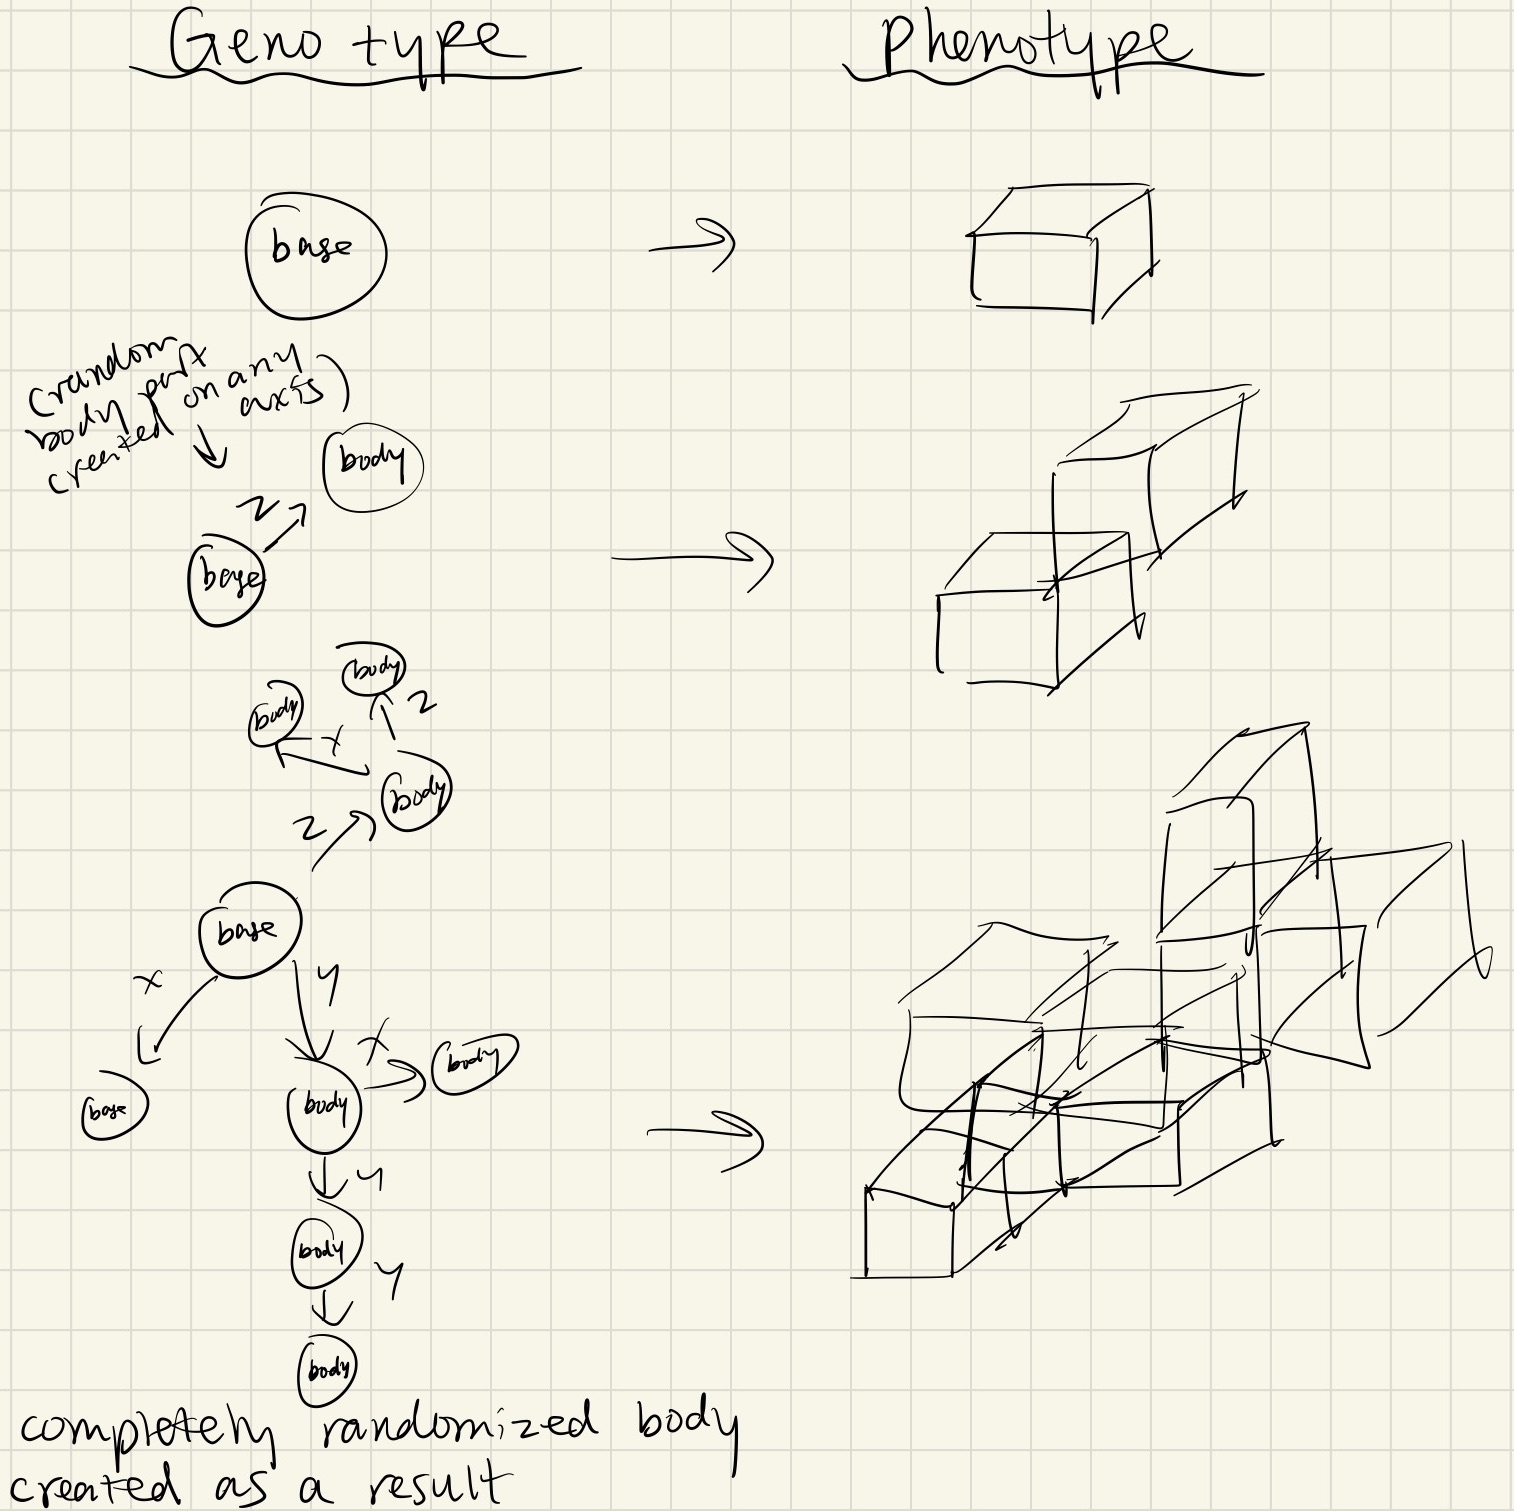 Genotype
Phenotype
base
(random
body part
created on any
axis)
body
z
base
body
body
z
x
body
z
base
x
y
x
body
base
body
y
body
y
body
completely randomized body
created as a result